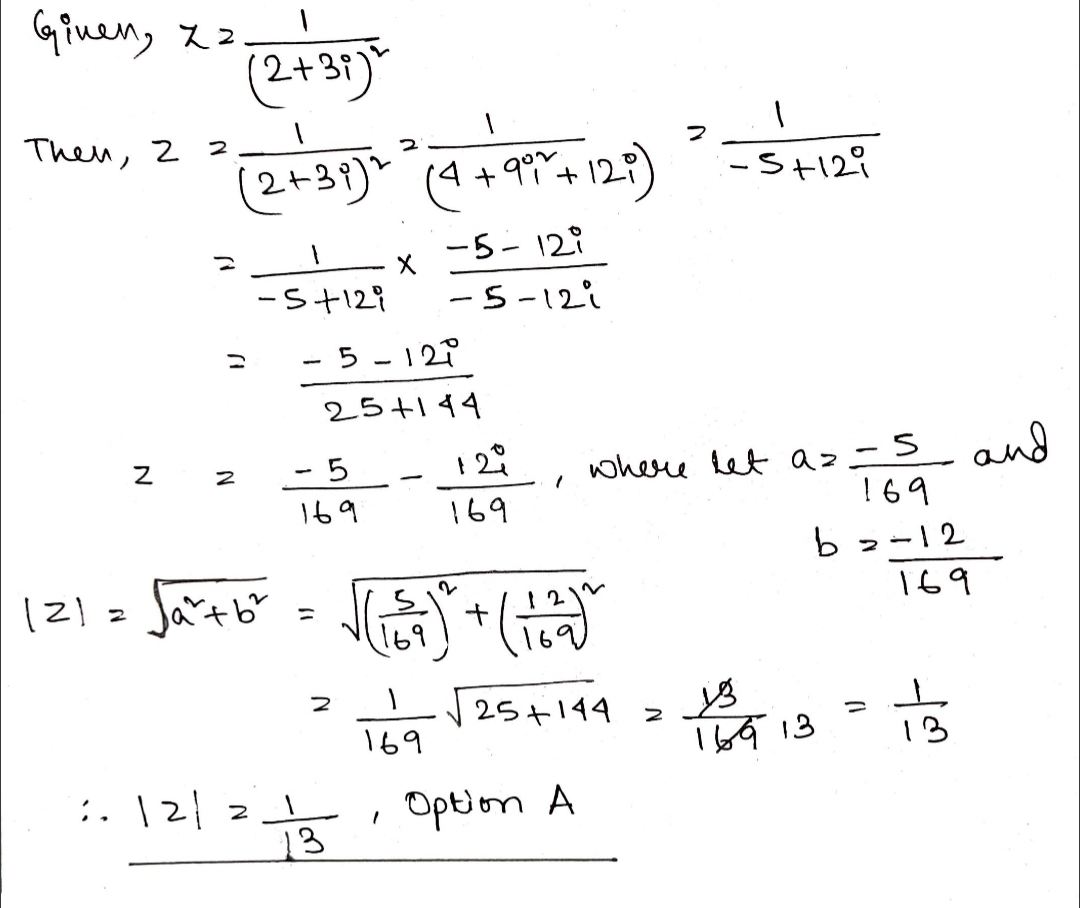 Given, z = 1/(2+3i)²
Then, z = 1/(2+3i)² = 1/(4+9i²+12i) = 1/-5+12i
= 1/-5+12i × -5-12i/-5-12i
= -5-12i/25+144
z = -5/169 - 12i/169, where let a = -5/169 and
b = -12/169
|z| = √a²+b² = √(5/169)²+(12/169)²
= 1/169 √25+144 = 13/169 13 = 1/13
∴ |z| = 1/13, Option A